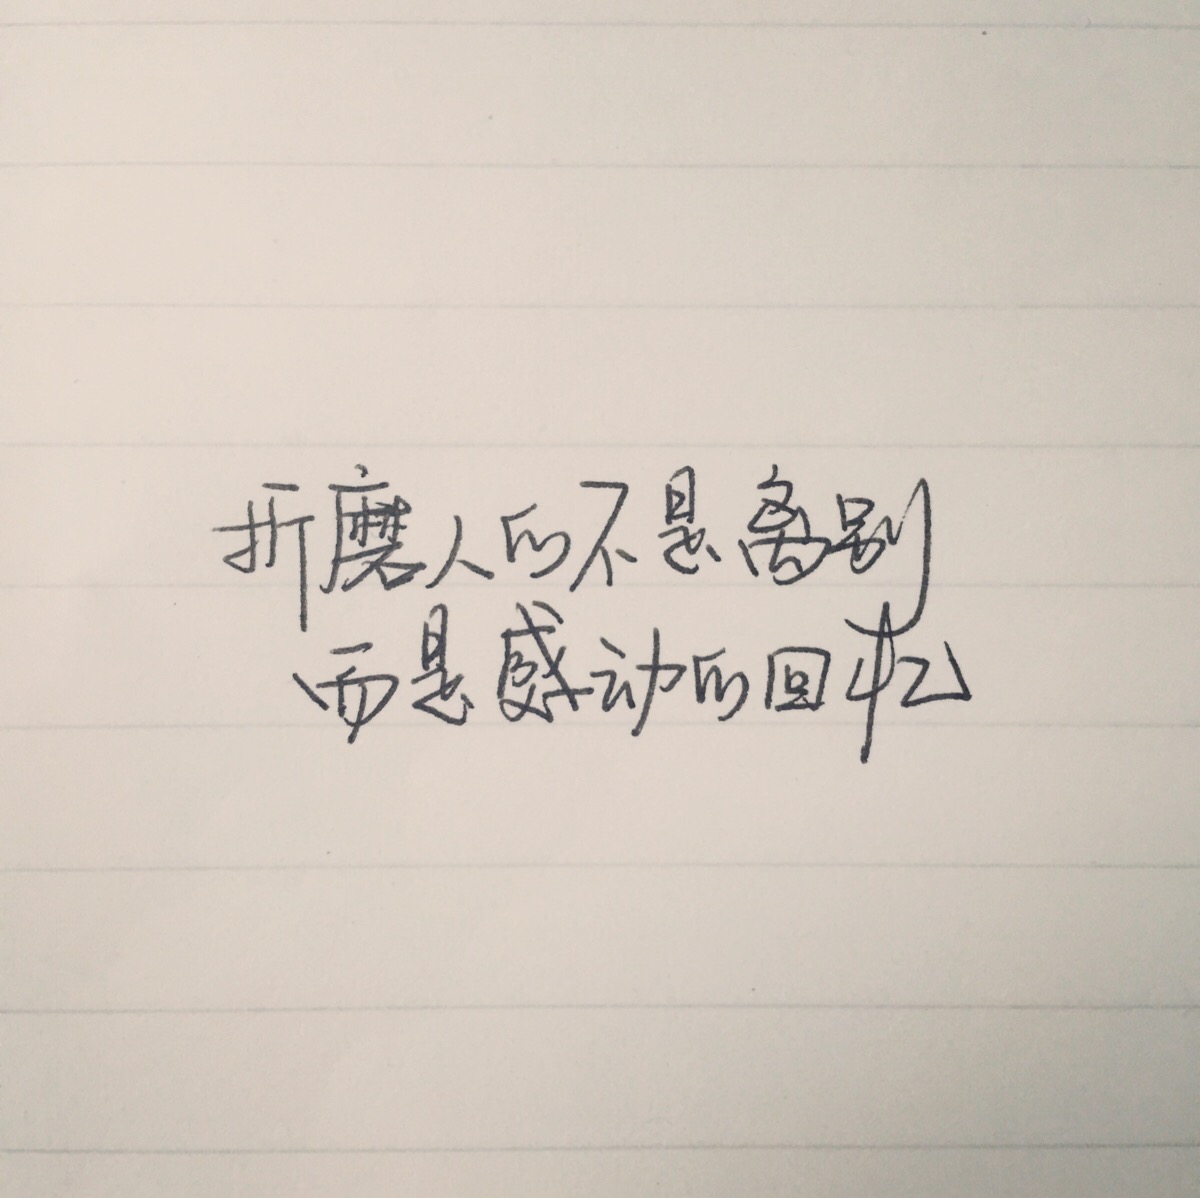 折磨人的不是离别
而是感动的回忆